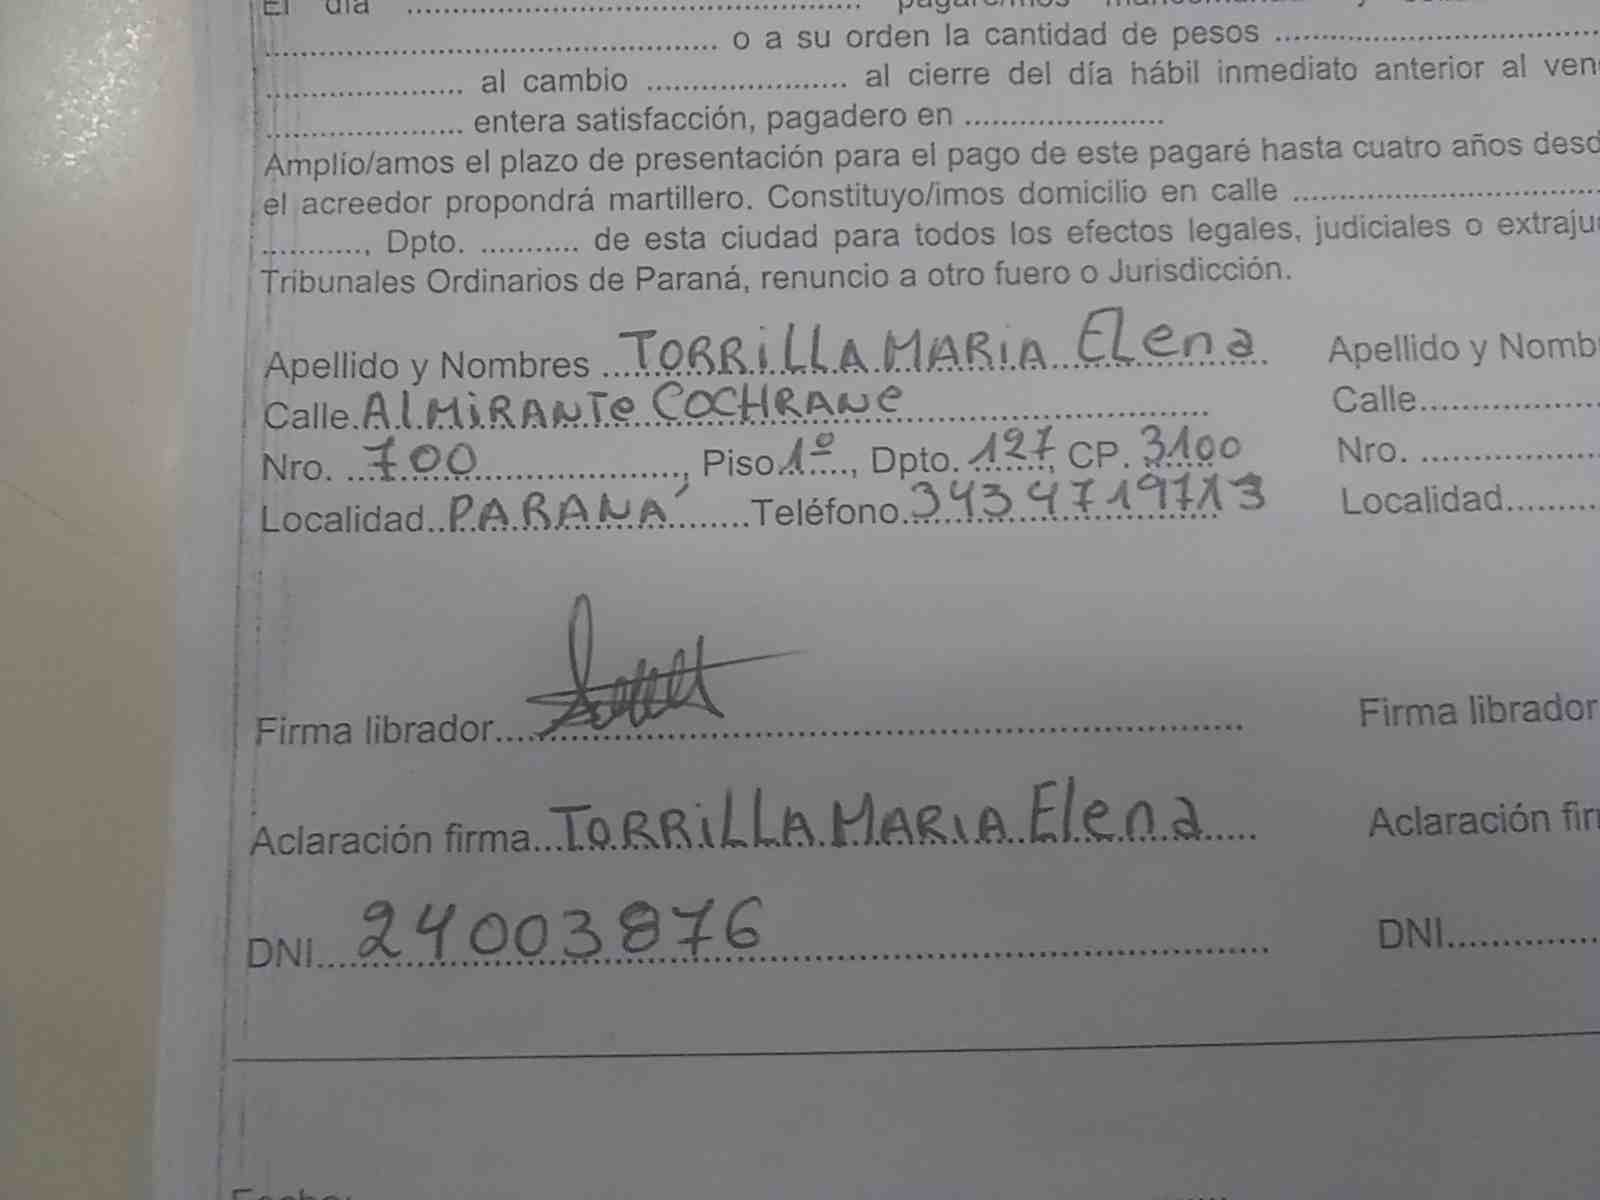 El día ........................................................ pagaré/mos
........................................................ o a su orden la cantidad de pesos ........................................
........................ al cambio ........................ al cierre del día hábil inmediato anterior al ven
........................ entera satisfacción, pagadero en ........................
Amplio/amos el plazo de presentación para el pago de este pagaré hasta cuatro años desd
el acreedor propondrá martillero. Constituyo/imos domicilio en calle ........................................
............, Dpto. ............ de esta ciudad para todos los efectos legales, judiciales o extraju
Tribunales Ordinarios de Paraná, renuncio a otro fuero o Jurisdicción.
Apellido y Nombres ...TORRiLLA MARiA Elena.. Apellido y Nomb
Calle.AlMiRANTe COCHRANe............................ Calle....................
Nro. ...700........................, Piso 1º...., Dpto. 127, CP. 3100 Nro. ....................
Localidad..PARANÁ........Teléfono.3434719713 Localidad............
Firma librador........................................................ Firma librador
Aclaración firma...TORRiLLA MARIA Elena..... Aclaración fir
DNI....24003876........................................ DNI................